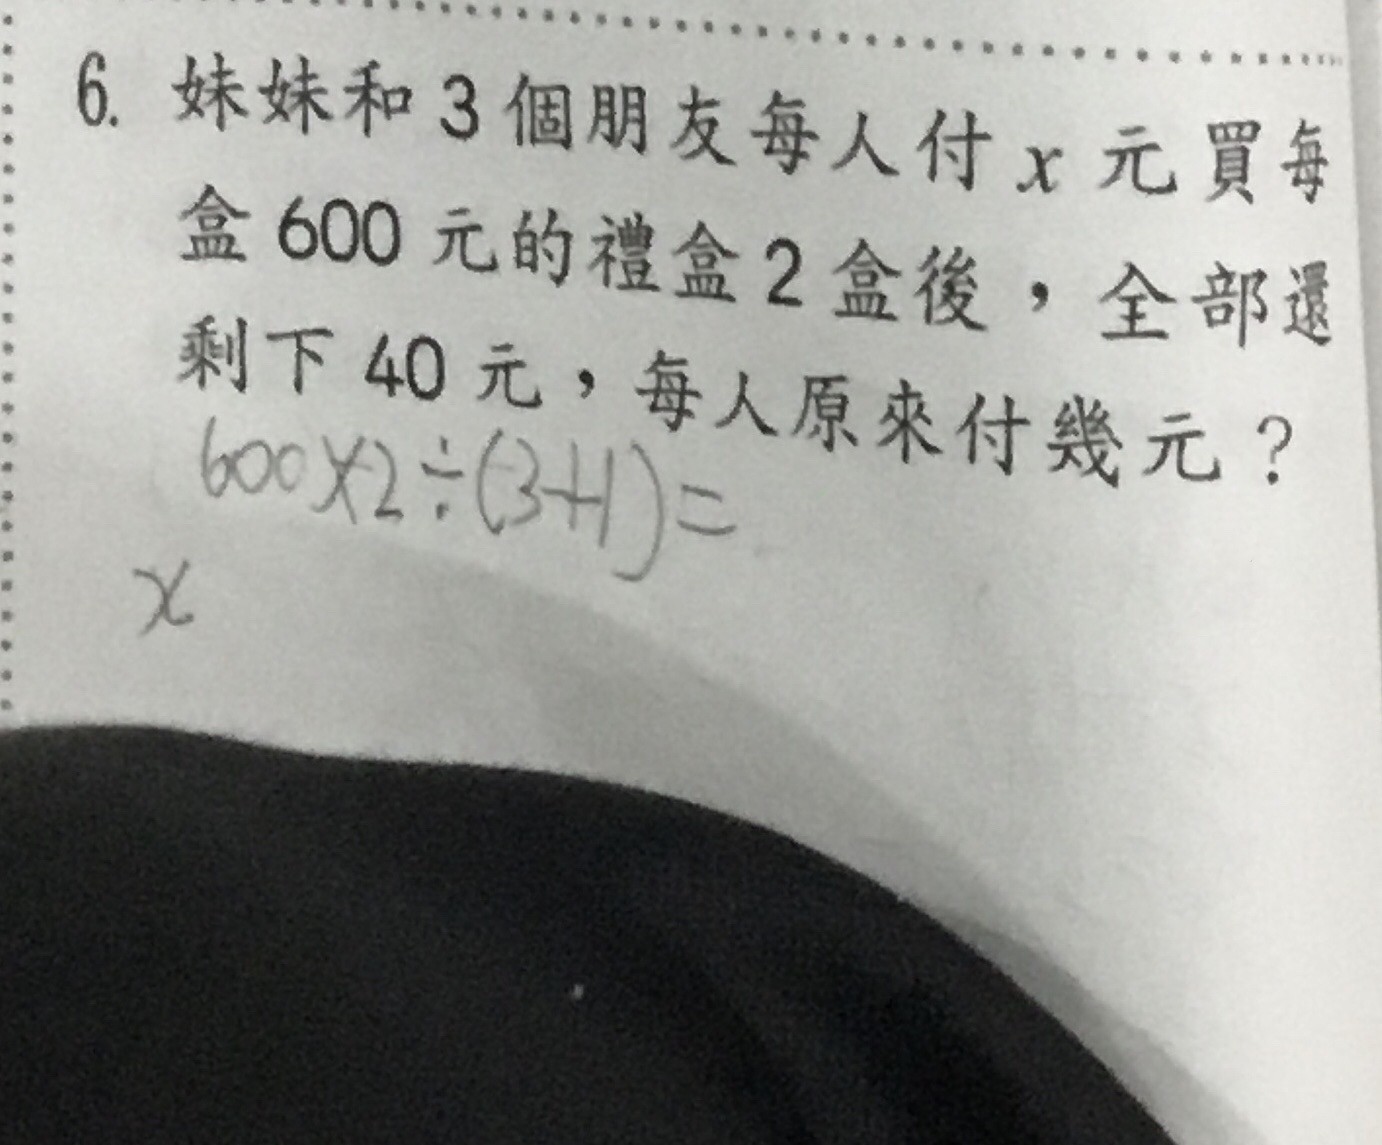 6. 妹妹和3個朋友每人付x元買每
盒600元的禮盒2盒後，全部還
剩下40元，每人原來付幾元？
600×2÷(3+1)=
x